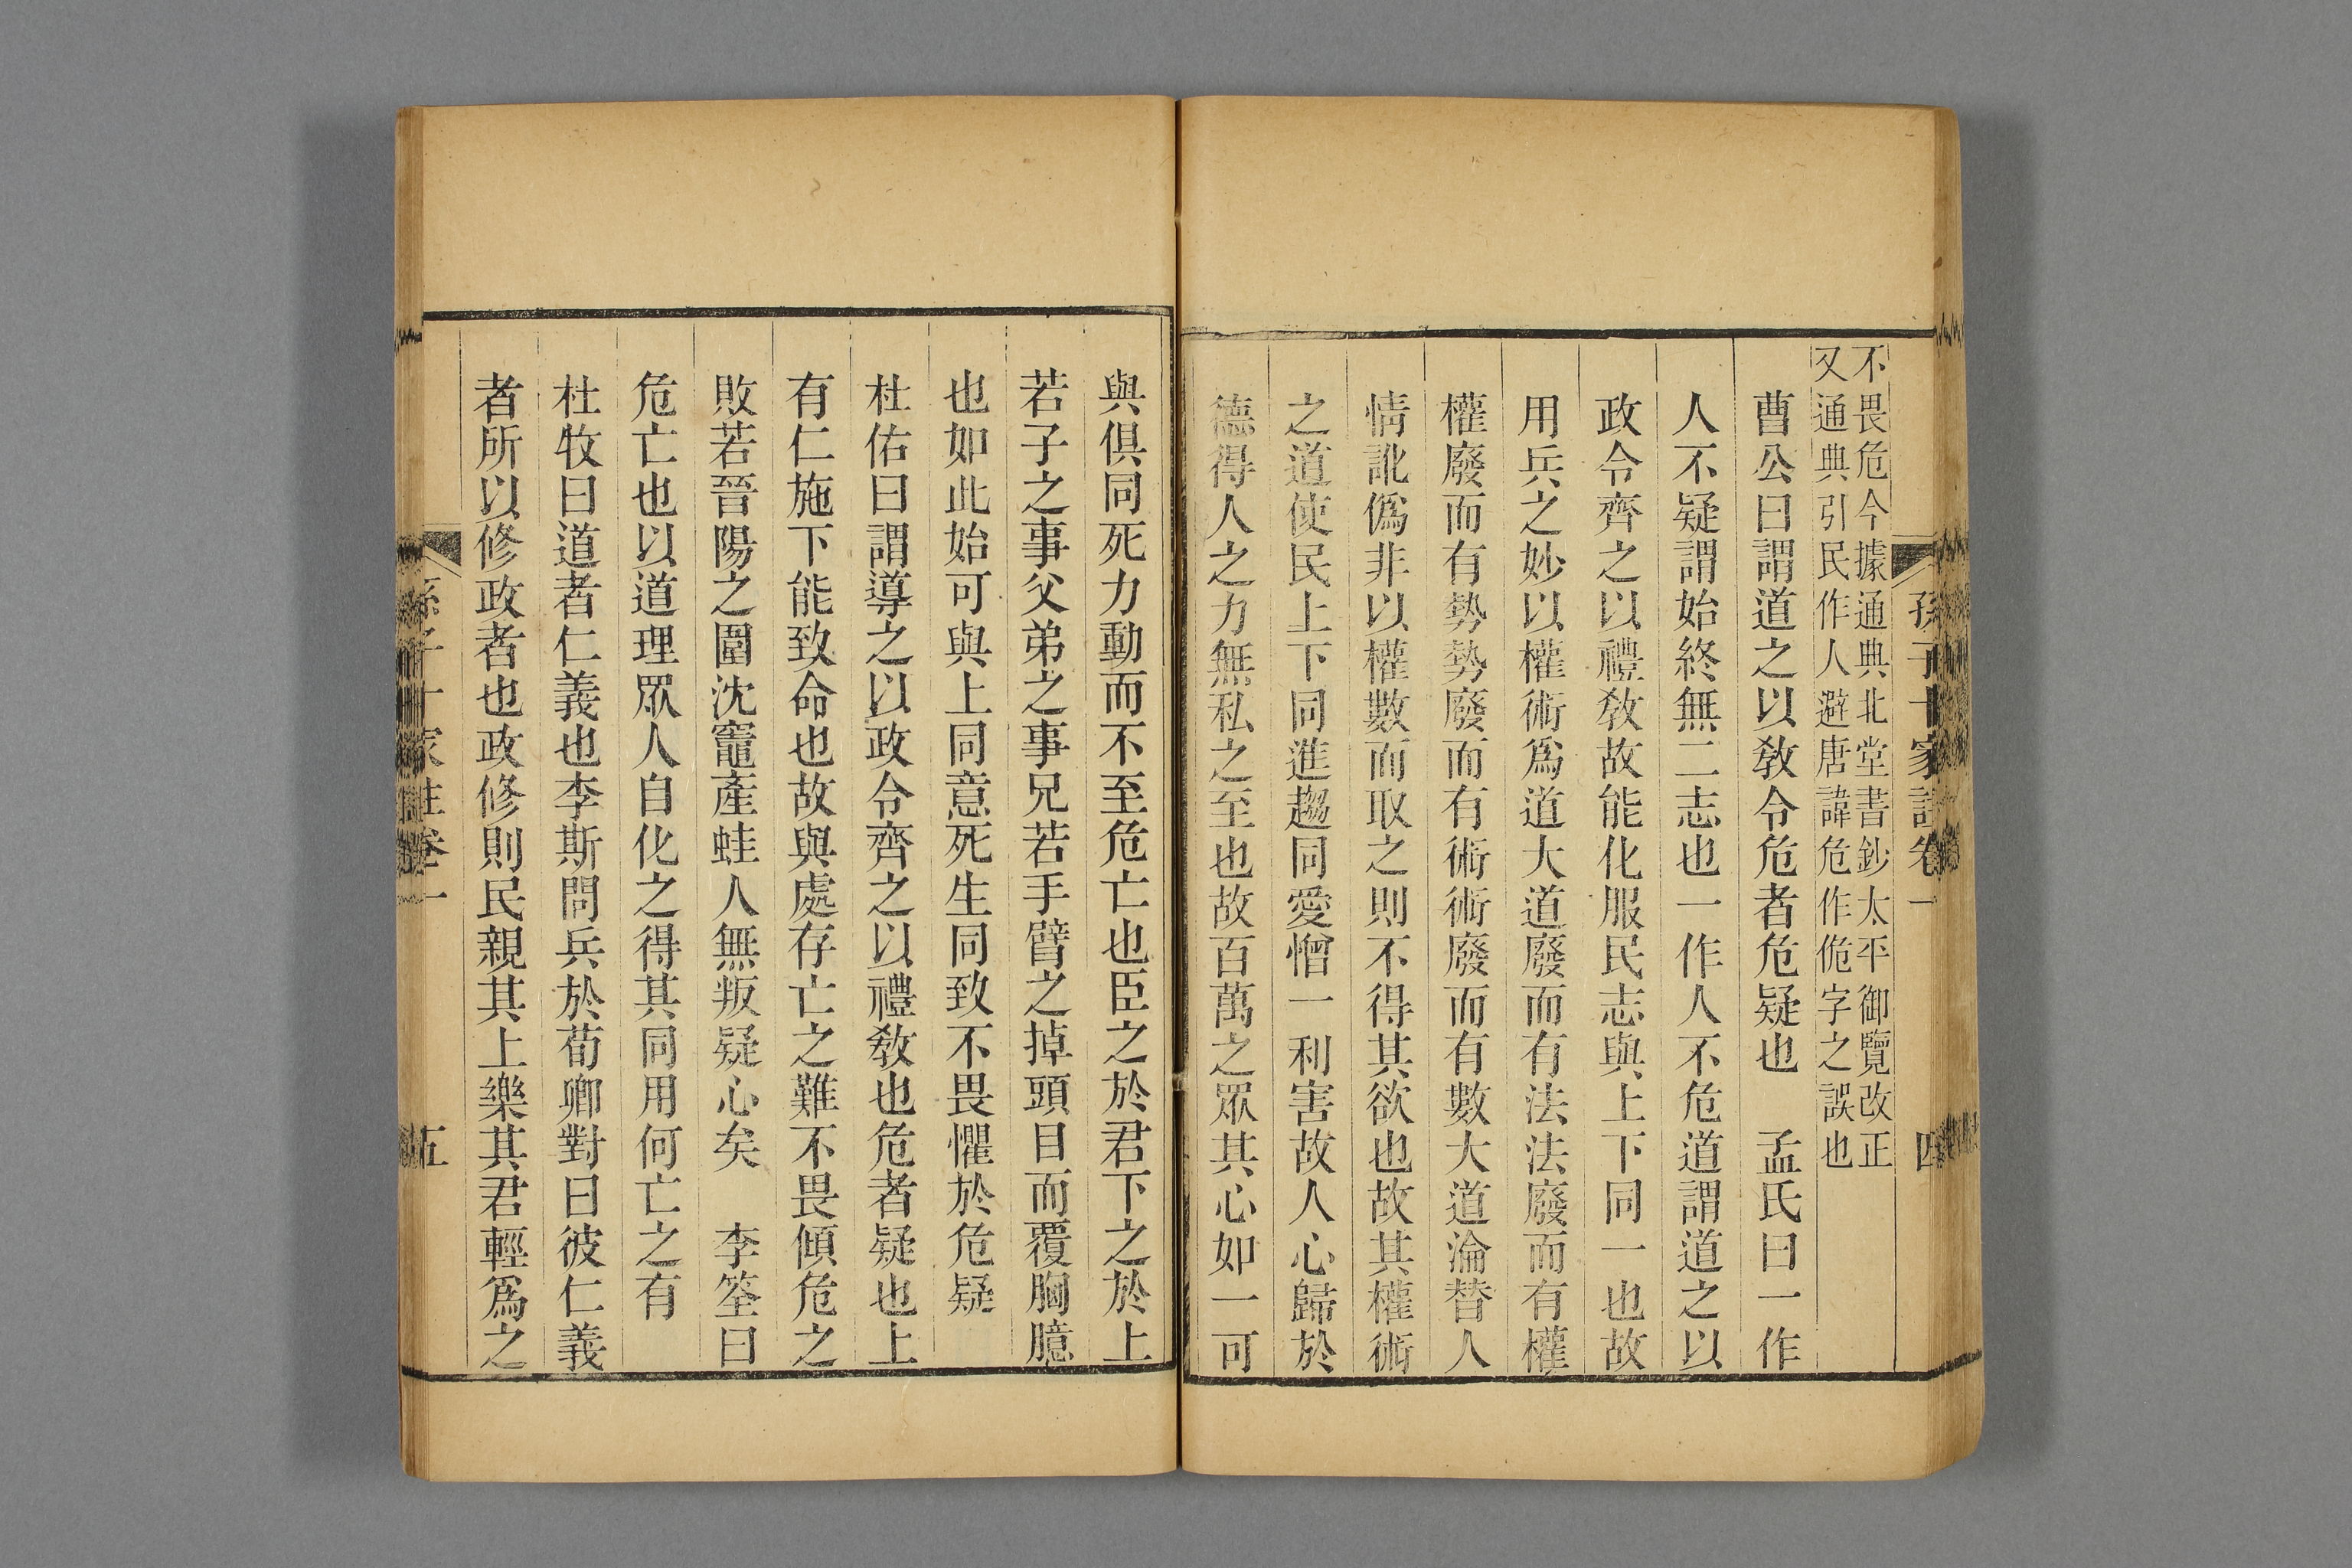 孫子十家註卷一
四
不畏危今據通典北堂書鈔太平御覽改正
又通典引民作人避唐諱危作佹字之誤也
曹公曰謂道之以敎令危者危疑也　孟氏曰一作
人不疑謂始終無二志也一作人不危道謂道之以
政令齊之以禮敎故能化服民志與上下同一也故
用兵之妙以權術爲道大道廢而有法法廢而有權
權廢而有勢勢廢而有術術廢而有數大道淪替人
情訛僞非以權數而取之則不得其欲也故其權術
之道使民上下同進趨同愛憎一利害故人心歸於
德得人之力無私之至也故百萬之眾其心如一可
與俱同死力動而不至危亡也臣之於君下之於上
若子之事父弟之事兄若手臂之掉頭目而覆胸臆
也如此始可與上同意死生同致不畏懼於危疑
杜佑曰謂導之以政令齊之以禮敎也危者疑也上
有仁施下能致命也故與處存亡之難不畏傾危之
敗若晉陽之圍沈竈產蛙人無叛疑心矣　李筌曰
危亡也以道理眾人自化之得其同用何亡之有
杜牧曰道者仁義也李斯問兵於荀卿對曰彼仁義
者所以修政者也政修則民親其上樂其君輕爲之
孫子十家註卷一
五